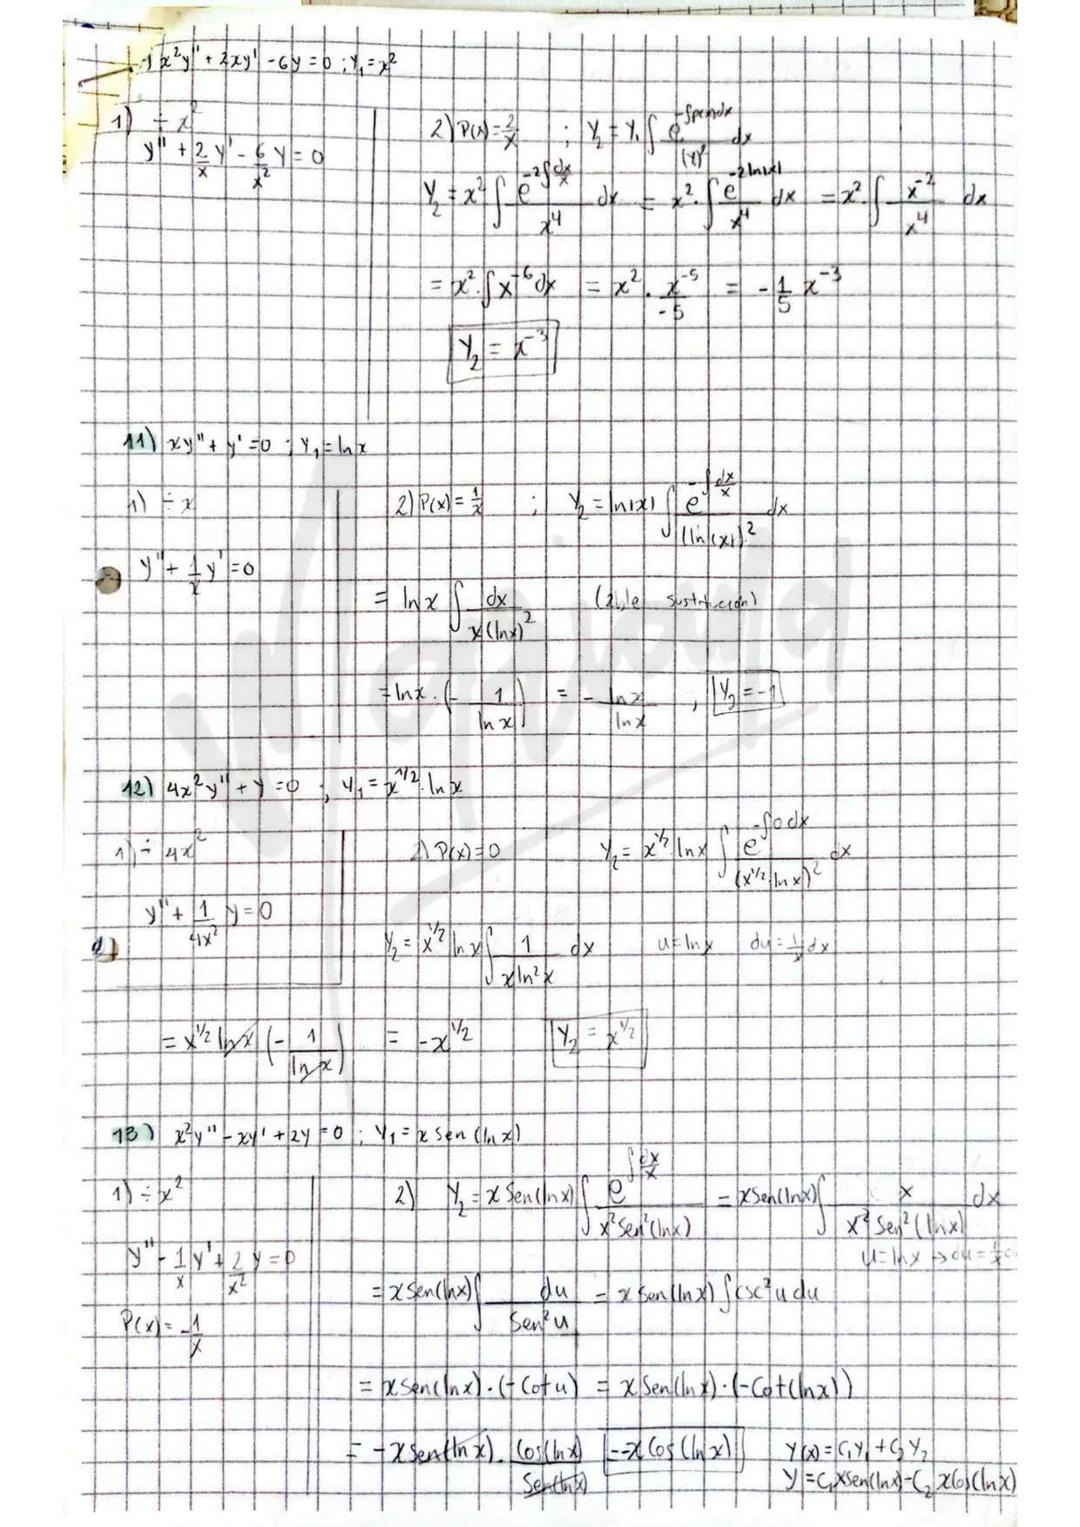 x²y" + 2xy' - 6y = 0 ; Y₁ = x²
1) ÷ x²
y" + 2/x y' - 6/x² y = 0
2) P(x) = 2/x ; Y₂ = Y₁ ∫ e^(-∫p(x)dx) / (Y₁)² dx
Y₂ = x² ∫ e^(-2∫dx/x) / x⁴ dx = x² · ∫ e^(-2ln|x|) / x⁴ dx = x² · ∫ x⁻² / x⁴ dx
= x² · ∫ x⁻⁶ dx = x² · x⁻⁵ / -5 = -1/5 x⁻³
Y₂ = x⁻³
11) xy" + y' = 0 ; Y₁ = ln x
1) ÷ x
y" + 1/x y' = 0
2) P(x) = 1/x ; Y₂ = ln|x| ∫ e^(-∫dx/x) / (ln(x))² dx
= ln x ∫ dx / x(lnx)² (sustitución)
= lnx · (- 1/ln x) = - ln x / ln x , Y₂ = -1
12) 4x²y" + y = 0 ; Y₁ = x^1/2 · ln x
1) ÷ 4x²
y" + 1/4x² y = 0
2) P(x) = 0 Y₂ = x^1/2 ln x ∫ e^(-∫0dx) / (x^1/2 ln x)² dx
Y₂ = x^1/2 ln x ∫ 1 / x ln²x dx u = ln x du = 1/x dx
= x^1/2 ln x (- 1/ln x) = -x^1/2 Y₂ = x^1/2
13) x²y" - xy' + 2y = 0 ; Y₁ = x Sen (ln x)
1) ÷ x²
y" - 1/x y' + 2/x² y = 0
P(x) = -1/x
2) Y₂ = x Sen(ln x) ∫ e^(∫dx/x) / x² Sen²(ln x) = x Sen(lnx) ∫ x / x² Sen²(ln x) dx
u = ln x → du = 1/x
= x Sen(lnx) ∫ du / Sen²u = x Sen(ln x) ∫ csc²u du
= x Sen(lnx) · (-Cot u) = x Sen(ln x) · (-Cot(lnx))
= -x Sen(ln x) · Cos(lnx) / Sen(lnx) = -x Cos(lnx)
Y(x) = C₁Y₁ + C₂Y₂
Y = C₁xsen(lnx) - C₂ xCos(lnx)